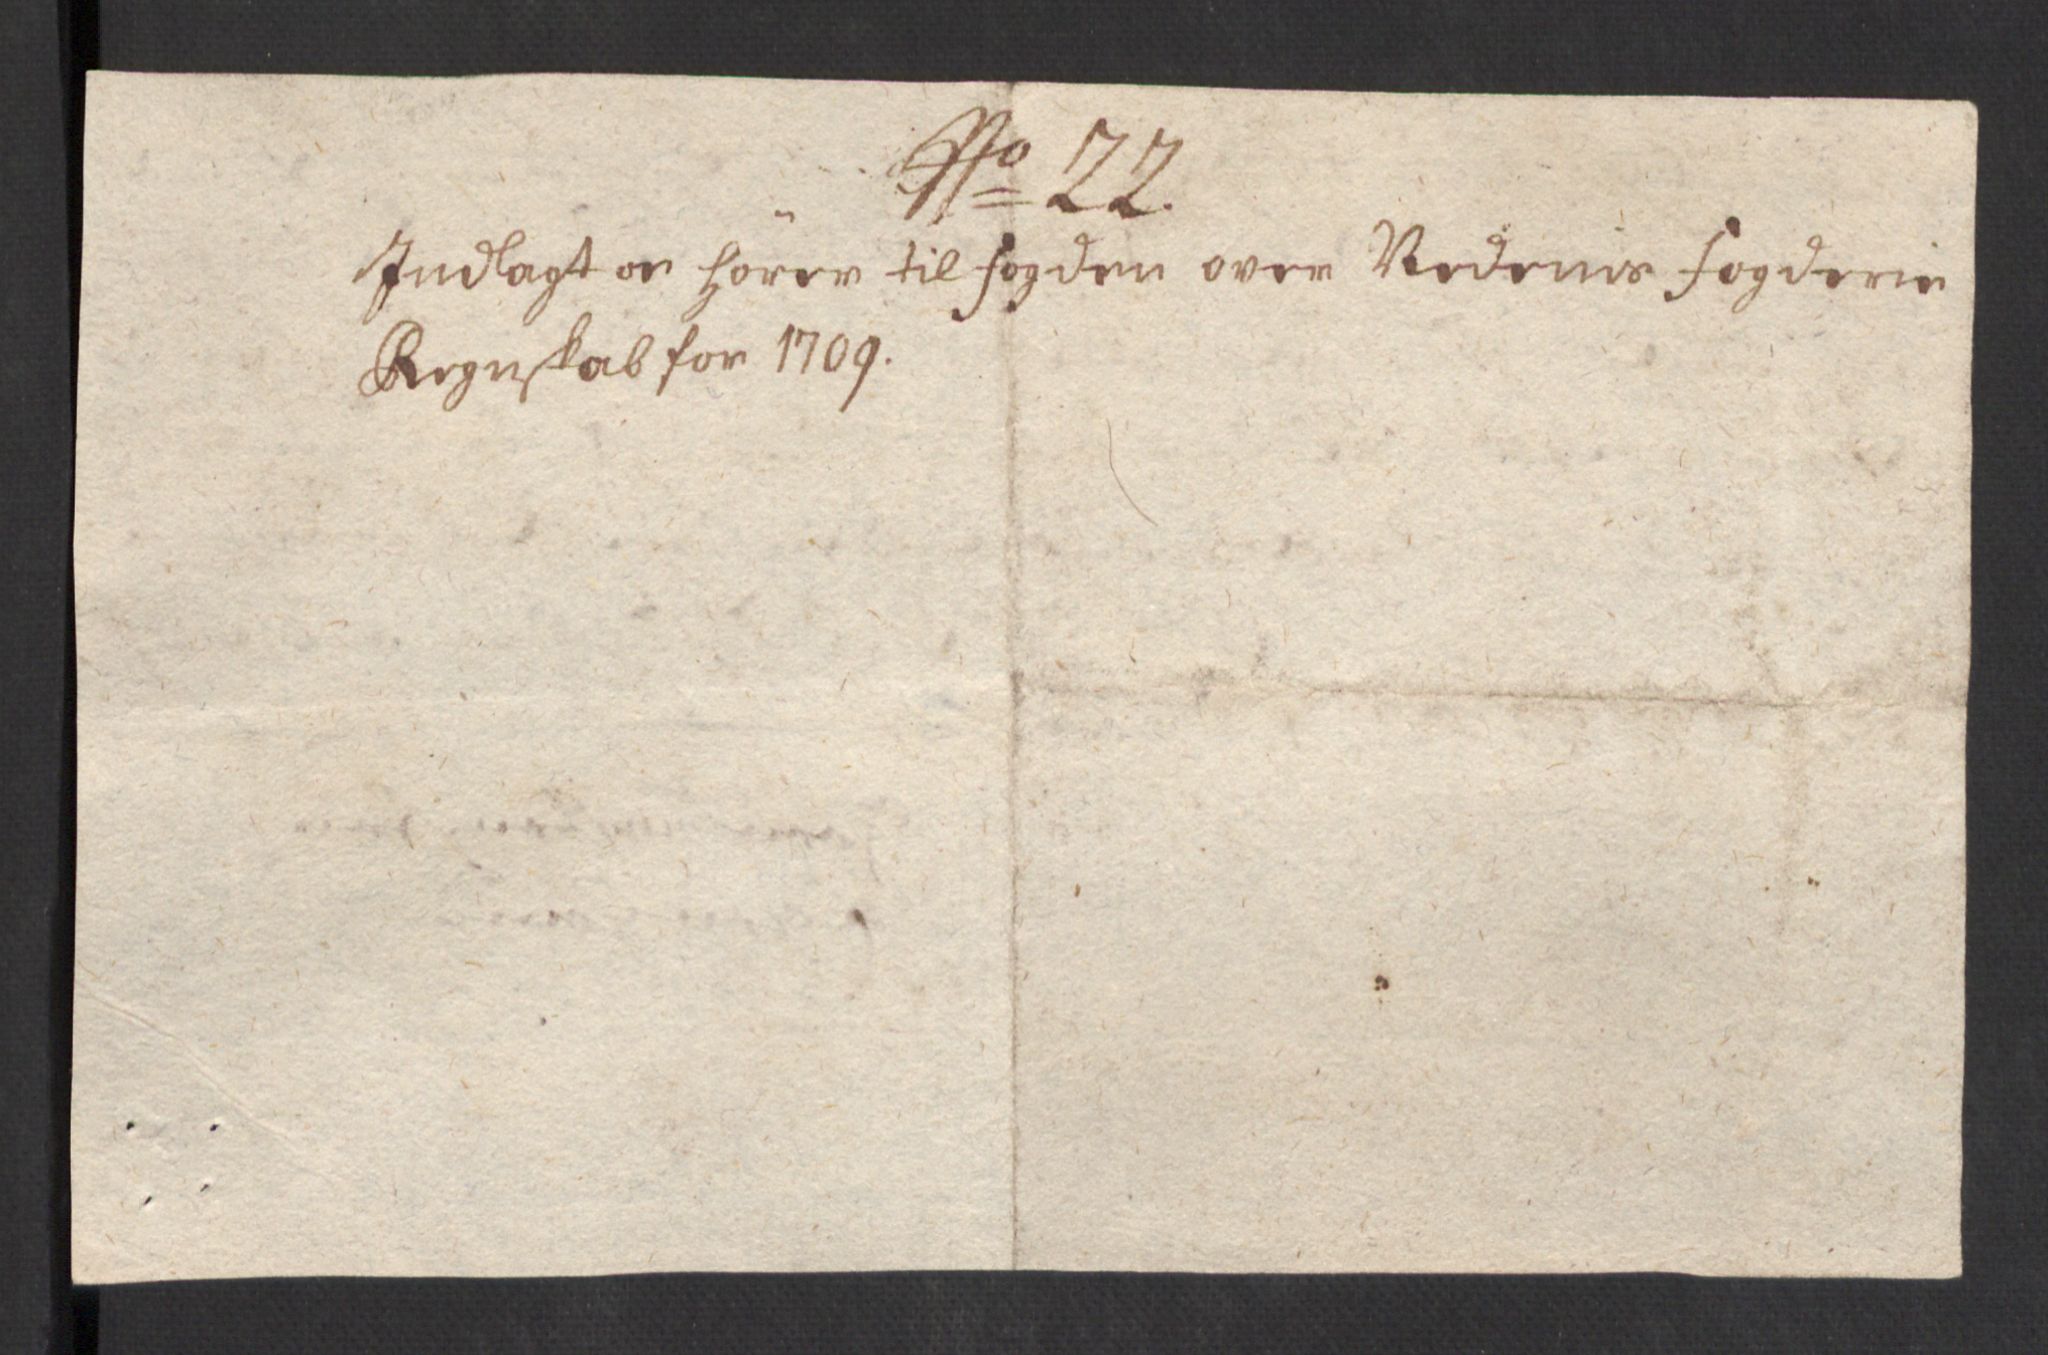 No 22.
Indlagt og hörer til fogden over Nedenis fogderie
Regnskab for 1709.